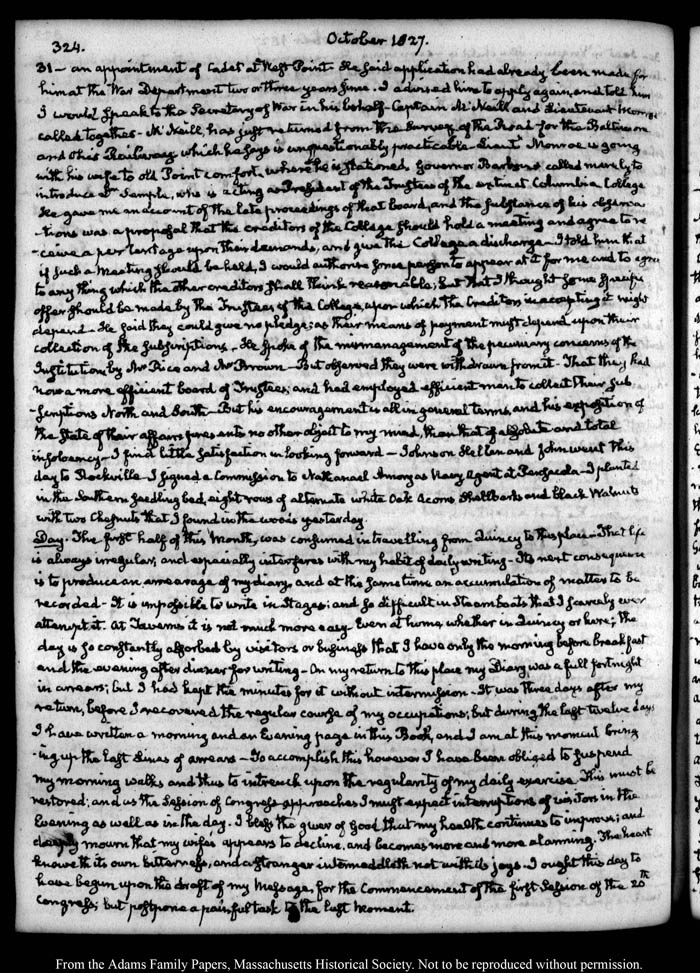 324.
October 1827.
31 — an appointment of Cadet at West Point. He said application had already been made for
him at the War Department two or three years since. I advised him to apply again, and told him
I would speak to the Secretary of War in his behalf. Captain McNeill and Lieutenant Monroe
called together. McNeill, has just returned from the Survey of the Road for the Baltimore
and Ohio Railway which he says is unquestionably practicable. Lieut. Monroe is going
with his wife to old Point comfort, where he is stationed. Governor Barbour called merely to
introduce Dr Semple, who is acting as President of the Trustees of the extinct Columbia College
He gave me an account of the late proceedings of that board, and the substance of his observa
-tions was a proposal that the creditors of the College should hold a meeting and agree to re
-ceive a per Centage upon their demands, and give the College a discharge — I told him that
if such a Meeting should be held, I would authorise some person to appear at it for me and to agree
to any thing which the other creditors shall think reasonable, but that I thought some specific
offer should be made by the Trustees of the College, upon which the Creditors in accepting it might
depend — He said they could give no pledge; as their means of payment must depend upon their
collection of the subscriptions. He spoke of the mismanagement of the pecuniary concerns of the
Institution by Mr Rice and Mr Brown — But observed they were withdrawn from it — That they had
now a more efficient board of Trustees; and had employed efficient men to collect their sub
-scriptions North and South — But his encouragement is all in general terms, and his exposition of
the State of their affairs presents no other object to my mind, than that of absolute and total
insolvency — I find little satisfaction in looking forward — Johnson Hellen and John went this
day to Rockville — I signed a Commission to Nathanael Amory as Navy Agent at Pensacola — I planted
in the Southern seedling bed, eight rows of alternate white Oak Acorns Shellbarks and black Walnuts
with two Chesnuts that I found in the woods yesterday.
Day. The first half of this Month, was consumed in travelling from Quincy to this place — That life
is always irregular, and especially interferes with my habit of daily writing — Its next consequence
is to produce an arrearage of my diary, and at the same time an accumulation of matter to be
recorded — It is impossible to write in Stages; and so difficult in Steamboats that I scarcely ever
attempt it. At Taverns it is not much more easy. Even at home, whether in Quincy or here, the
day is so constantly absorbed by visitors or business that I have only the morning before breakfast
and the evening after dinner for writing — On my return to this place my Diary was a full fortnight
in arrears; but I had kept the minutes for it without intermission — It was three days after my
return, before I recovered the regular course of my occupations; but during the last twelve days
I have written a morning and an Evening page in this Book, and I am at this moment bring
-ing up the last lines of arrears — To accomplish this however I have been obliged to suspend
my morning walks and thus to intrench upon the regularity of my daily exercise. This must be
restored; and as the Session of Congress approaches I must expect interruptions of visitors in the
Evening as well as in the day. I bless the giver of Good that my health continues to improve; and
deeply mourn that my wifes appears to decline, and becomes more and more alarming. The heart
knoweth its own bitterness, and a stranger intermeddleth not with its joys. I ought this day to
have begun upon the draft of my Message, for the Commencement of the first Session of the 20th
Congress; but postpone a painful task to the last moment.
From the Adams Family Papers, Massachusetts Historical Society. Not to be reproduced without permission.